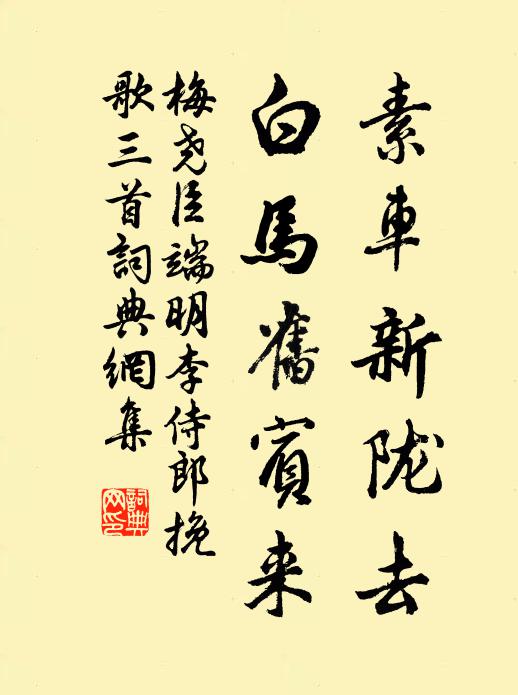 素車新陇去
白馬舊賓来
梅尧臣端明李侍郎挽
歌三首詞典網集
詞典网印